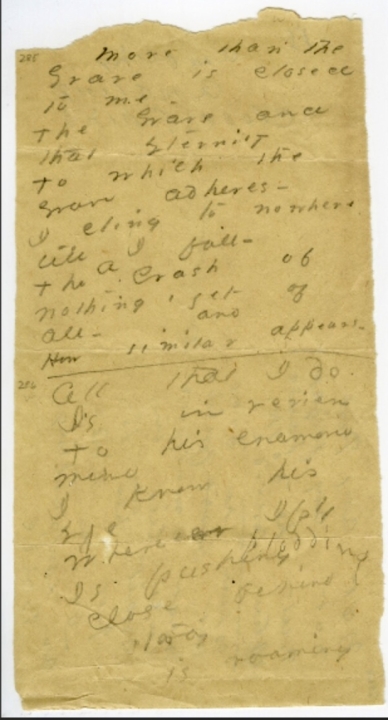 285 More than the
Grave is closed
to me -
the Grave and
that Eternity
to which the
Grave adheres -
I cling to nowhere
till I fall -
the Crash of
nothing, yet of
all - and
How similar appears -
286 All that I do
Is in review
to his enamored
mind
I know his
eye
Where e'er I ply
Is pushing plodding
close behind
is roaming